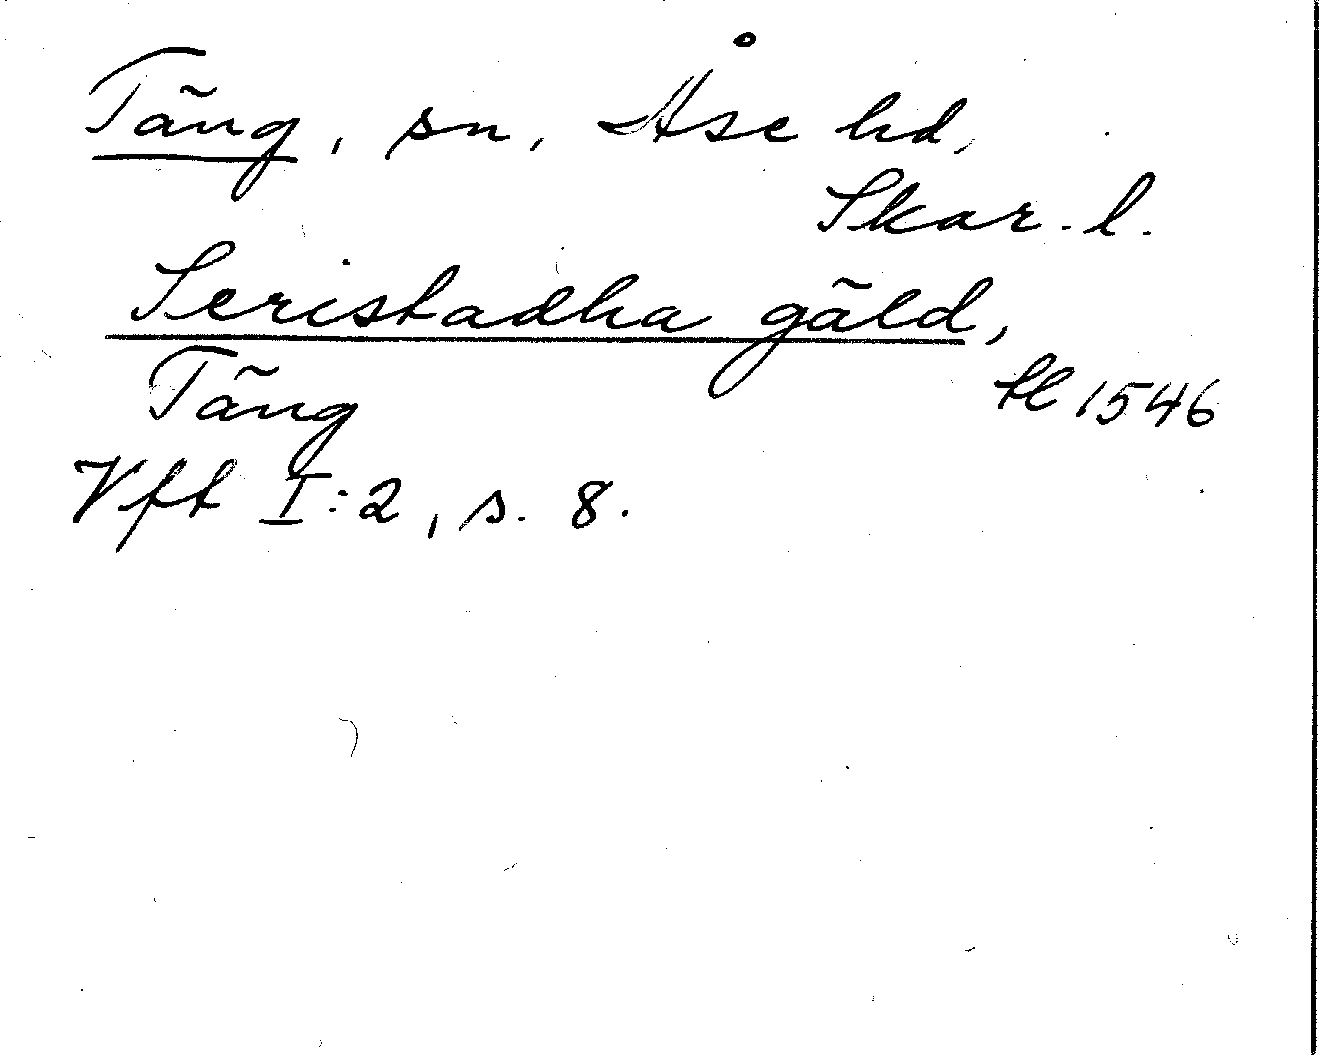 Täng, sn, Åse hd,
Skar. l.
Seristadha gäld,
Täng
1546
Vft I:2, s. 8.